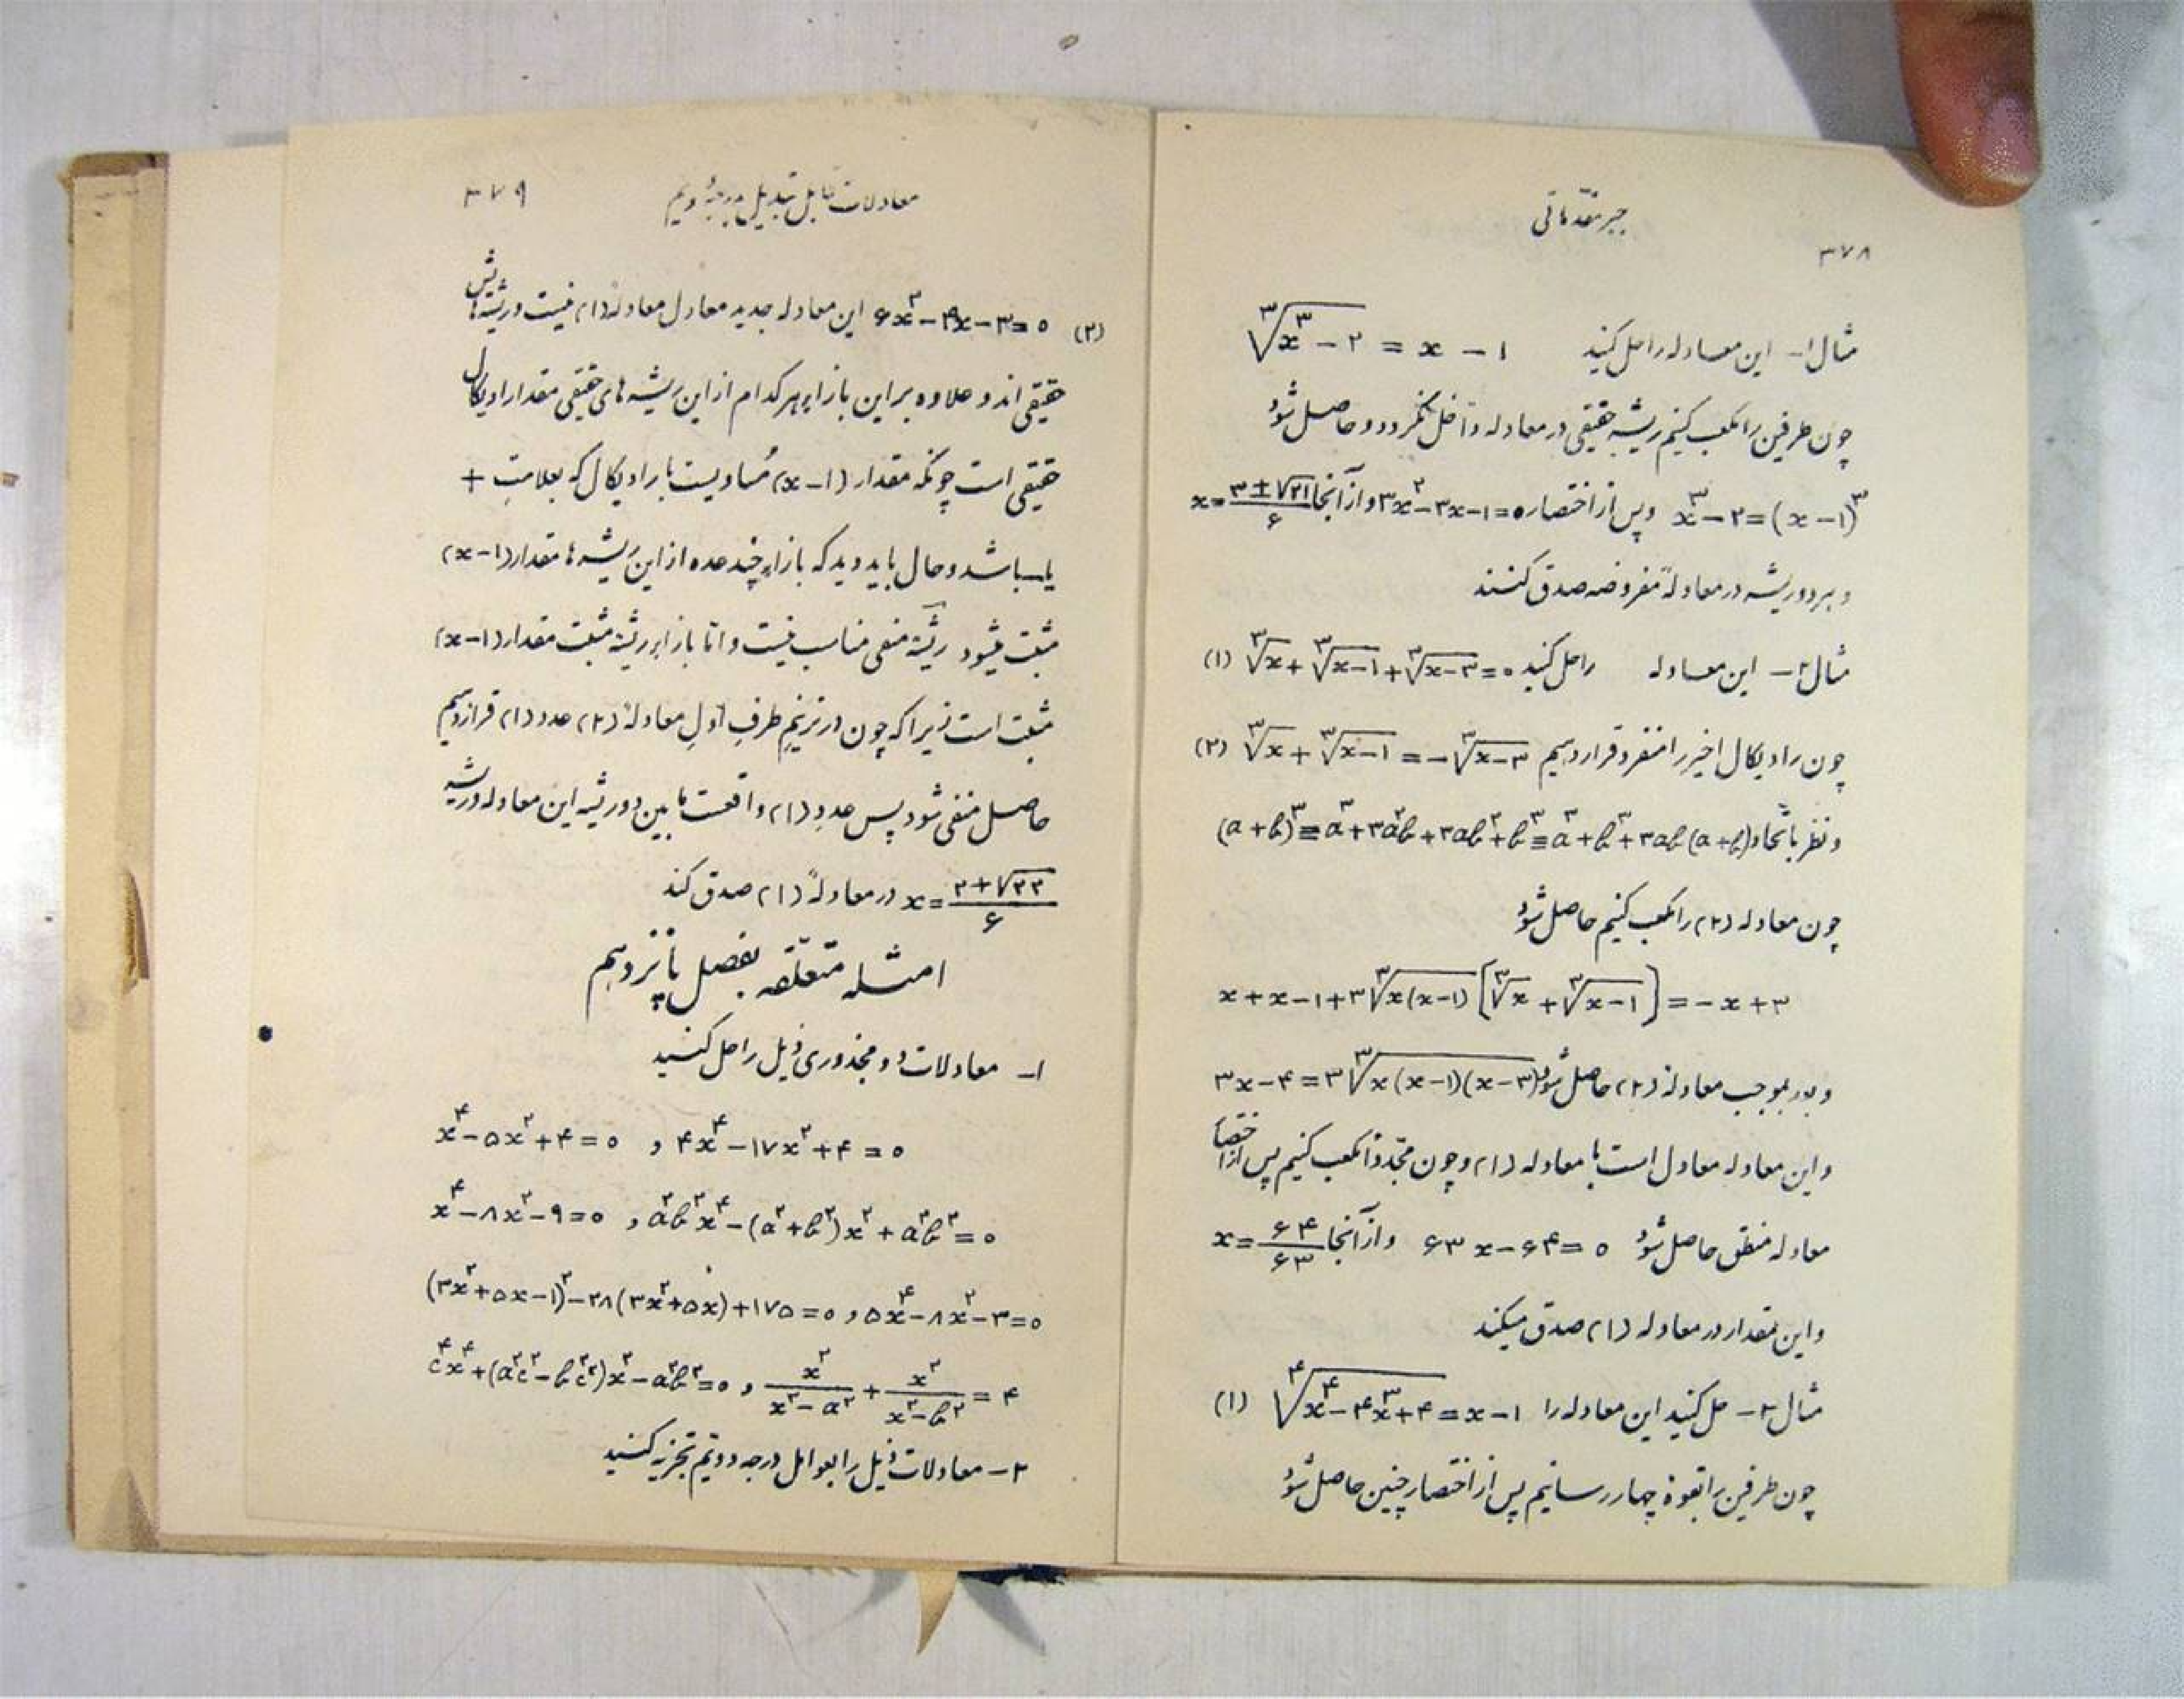 ۳۷۸
جبر مقدماتی
مثال ۱- این معادله را حل کنید ∛(x³ − ۲) = x − ۱
چون طرفین را مکعب کنیم ریشه حقیقی در معادله داخل نگردد و حاصل شود
x³ − ۲ = (x − ۱)³ و پس از اختصار ۳x² − ۳x − ۱ = ۰ و از آنجا x = (۳ ± √۲۱)/۶
و هر دو ریشه در معادلهٔ مفروضه صدق کنند
مثال ۲- این معادله را حل کنید ∛x + ∛(x−۱) + ∛(x−۳) = ۰ (۱)
چون رادیکال اخیر را منفرد قرار دهیم ∛x + ∛(x−۱) = −∛(x−۳) (۲)
و نظر باتحاد (a+b)³ ≡ a³ + ۳a²b + ۳ab² + b³ ≡ a³ + b³ + ۳ab(a+b)
چون معادله (۲) را مکعب کنیم حاصل شود
x + x − ۱ + ۳∛(x(x−۱)) [∛x + ∛(x−۱)] = −x + ۳
و بموجب معادله (۲) حاصل شود ۳x − ۴ = ۳∛(x(x−۱)(x−۳))
و این معادله معادل است با معادله (۱) و چون مجدداً مکعب کنیم پس از اختصار
معادله منطق حاصل شود ۶۳x − ۶۴ = ۰ و از آنجا x = ۶۴/۶۳
و این مقدار در معادله (۱) صدق میکند
مثال ۳- حل کنید این معادله را ∜(x⁴ − ۴x³ + ۴) = x − ۱ (۱)
چون طرفین را بقوهٔ چهار رسانیم پس از اختصار چنین حاصل شود
معادلات قابل تبدیل بدرجهٔ دویم ۳۷۹
(۲) ۶x² − ۴x − ۳ = ۰ این معادله جدید معادل معادلهٔ (۱) نیست و ریشه‌هایش
حقیقی‌اند و علاوه بر این بازاء هر کدام از این ریشه های حقیقی مقدار رادیکال
حقیقی است چونکه مقدار (x−۱) مساویست با رادیکال که بعلامت +
یا - باشد و حال باید دید که بازاء چند عده از این ریشه‌ها مقدار (x−۱)
مثبت میشود ریشهٔ منفی مناسب نیست و اما بازاء ریشهٔ مثبت مقدار (x−۱)
مثبت است زیرا که چون در ترینم طرف اول معادلهٔ (۲) عدد (۱) قرار دهیم
حاصل منفی شود پس عدد (۱) واقعست مابین دو ریشه این معادله و ریشه
x = (۲+√۲۲)/۶ در معادلهٔ (۱) صدق کند
امثله متعلقه بفصل پانزدهم
۱- معادلات دو مجذوری ذیل را حل کنید
x⁴ − ۵x² + ۴ = ۰ , ۴x⁴ − ۱۷x² + ۴ = ۰
x⁴ − ۸x² − ۹ = ۰ , a²b²x⁴ − (a⁴+b⁴)x² + a²b² = ۰
(۳x²+۵x−۱)² − ۲۸(۳x²+۵x) + ۱۷۵ = ۰ , ۵x⁴ − ۸x² − ۳ = ۰
c⁴x⁴ + (a²c² − b²c²)x² − a²b² = ۰ , x²/(x²−a²) + x²/(x²−b²) = ۴
۲- معادلات ذیل را بعوامل درجه دویم تجزیه کنید